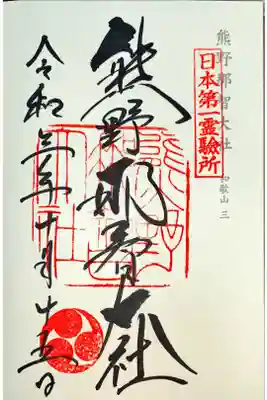 熊野那智大社
和歌山 三
日本第一霊験所
熊野那智大社
令和六年十月十五日